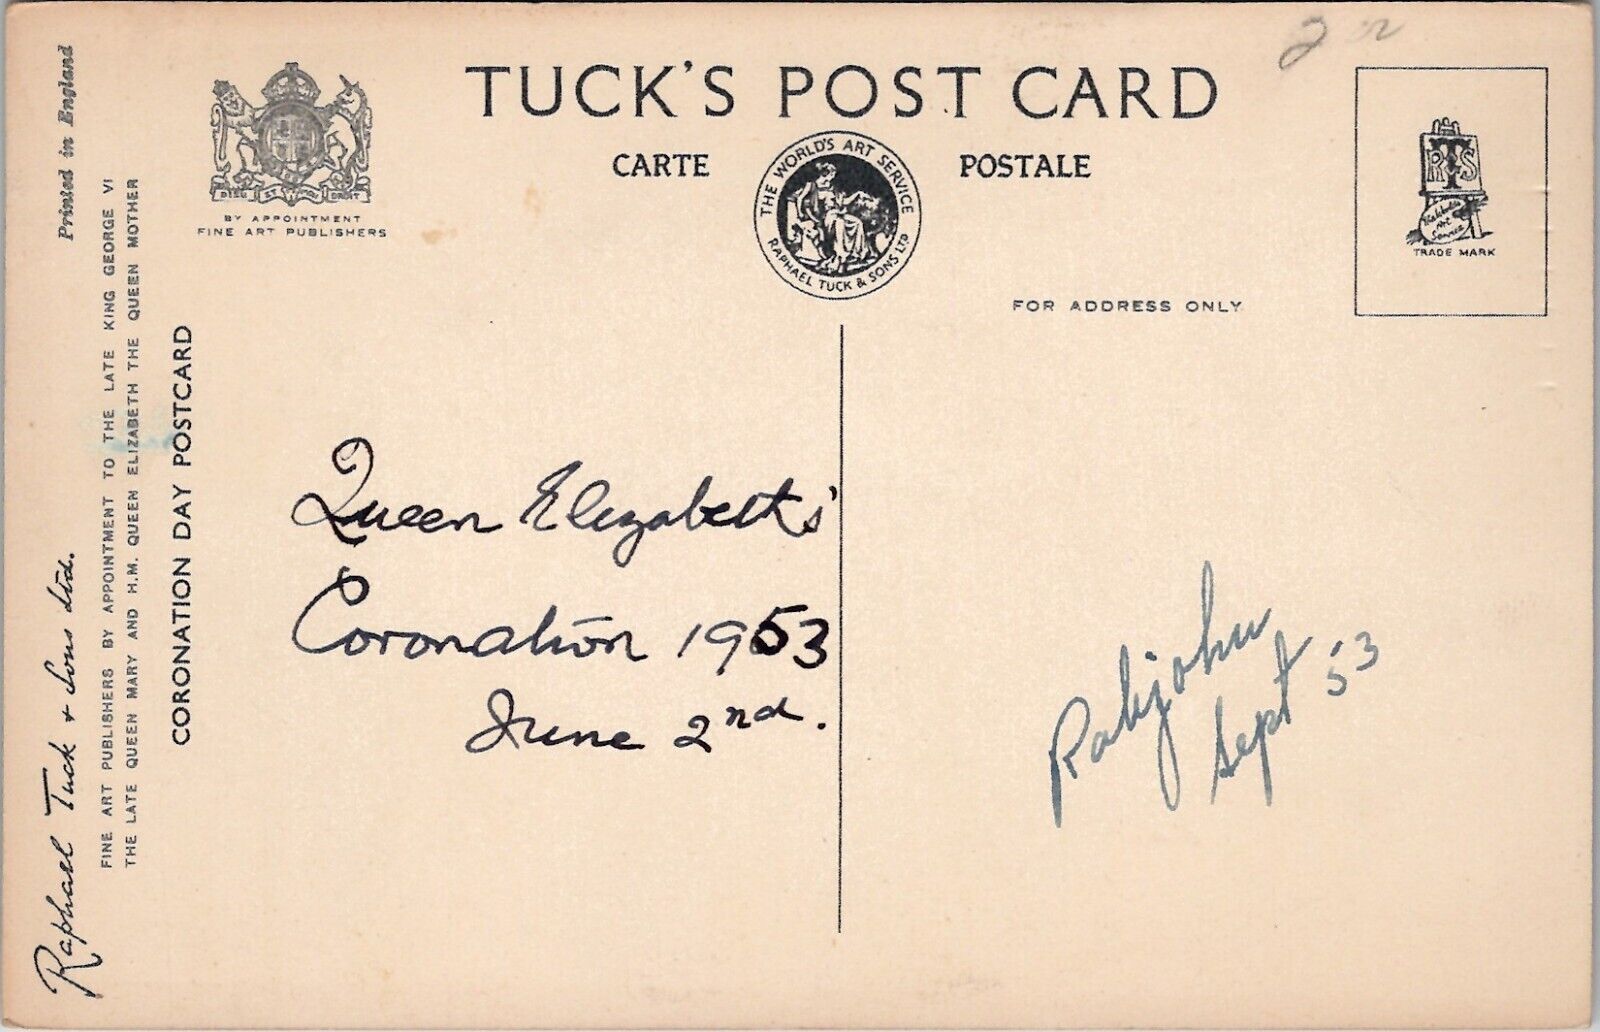 TUCK'S POST CARD
CARTE POSTALE
THE WORLD'S ART SERVICE
RAPHAEL TUCK & SONS LTD
DIEU ET MON DROIT
BY APPOINTMENT
FINE ART PUBLISHERS
RTS
TRADE MARK
FOR ADDRESS ONLY
Printed in England
Raphael Tuck & Sons Ltd.
FINE ART PUBLISHERS BY APPOINTMENT TO THE LATE KING GEORGE VI
THE LATE QUEEN MARY AND H.M. QUEEN ELIZABETH THE QUEEN MOTHER
CORONATION DAY POSTCARD
Queen Elizabeths'
Coronation 1953
June 2nd.
Rabjohn
Sept '53